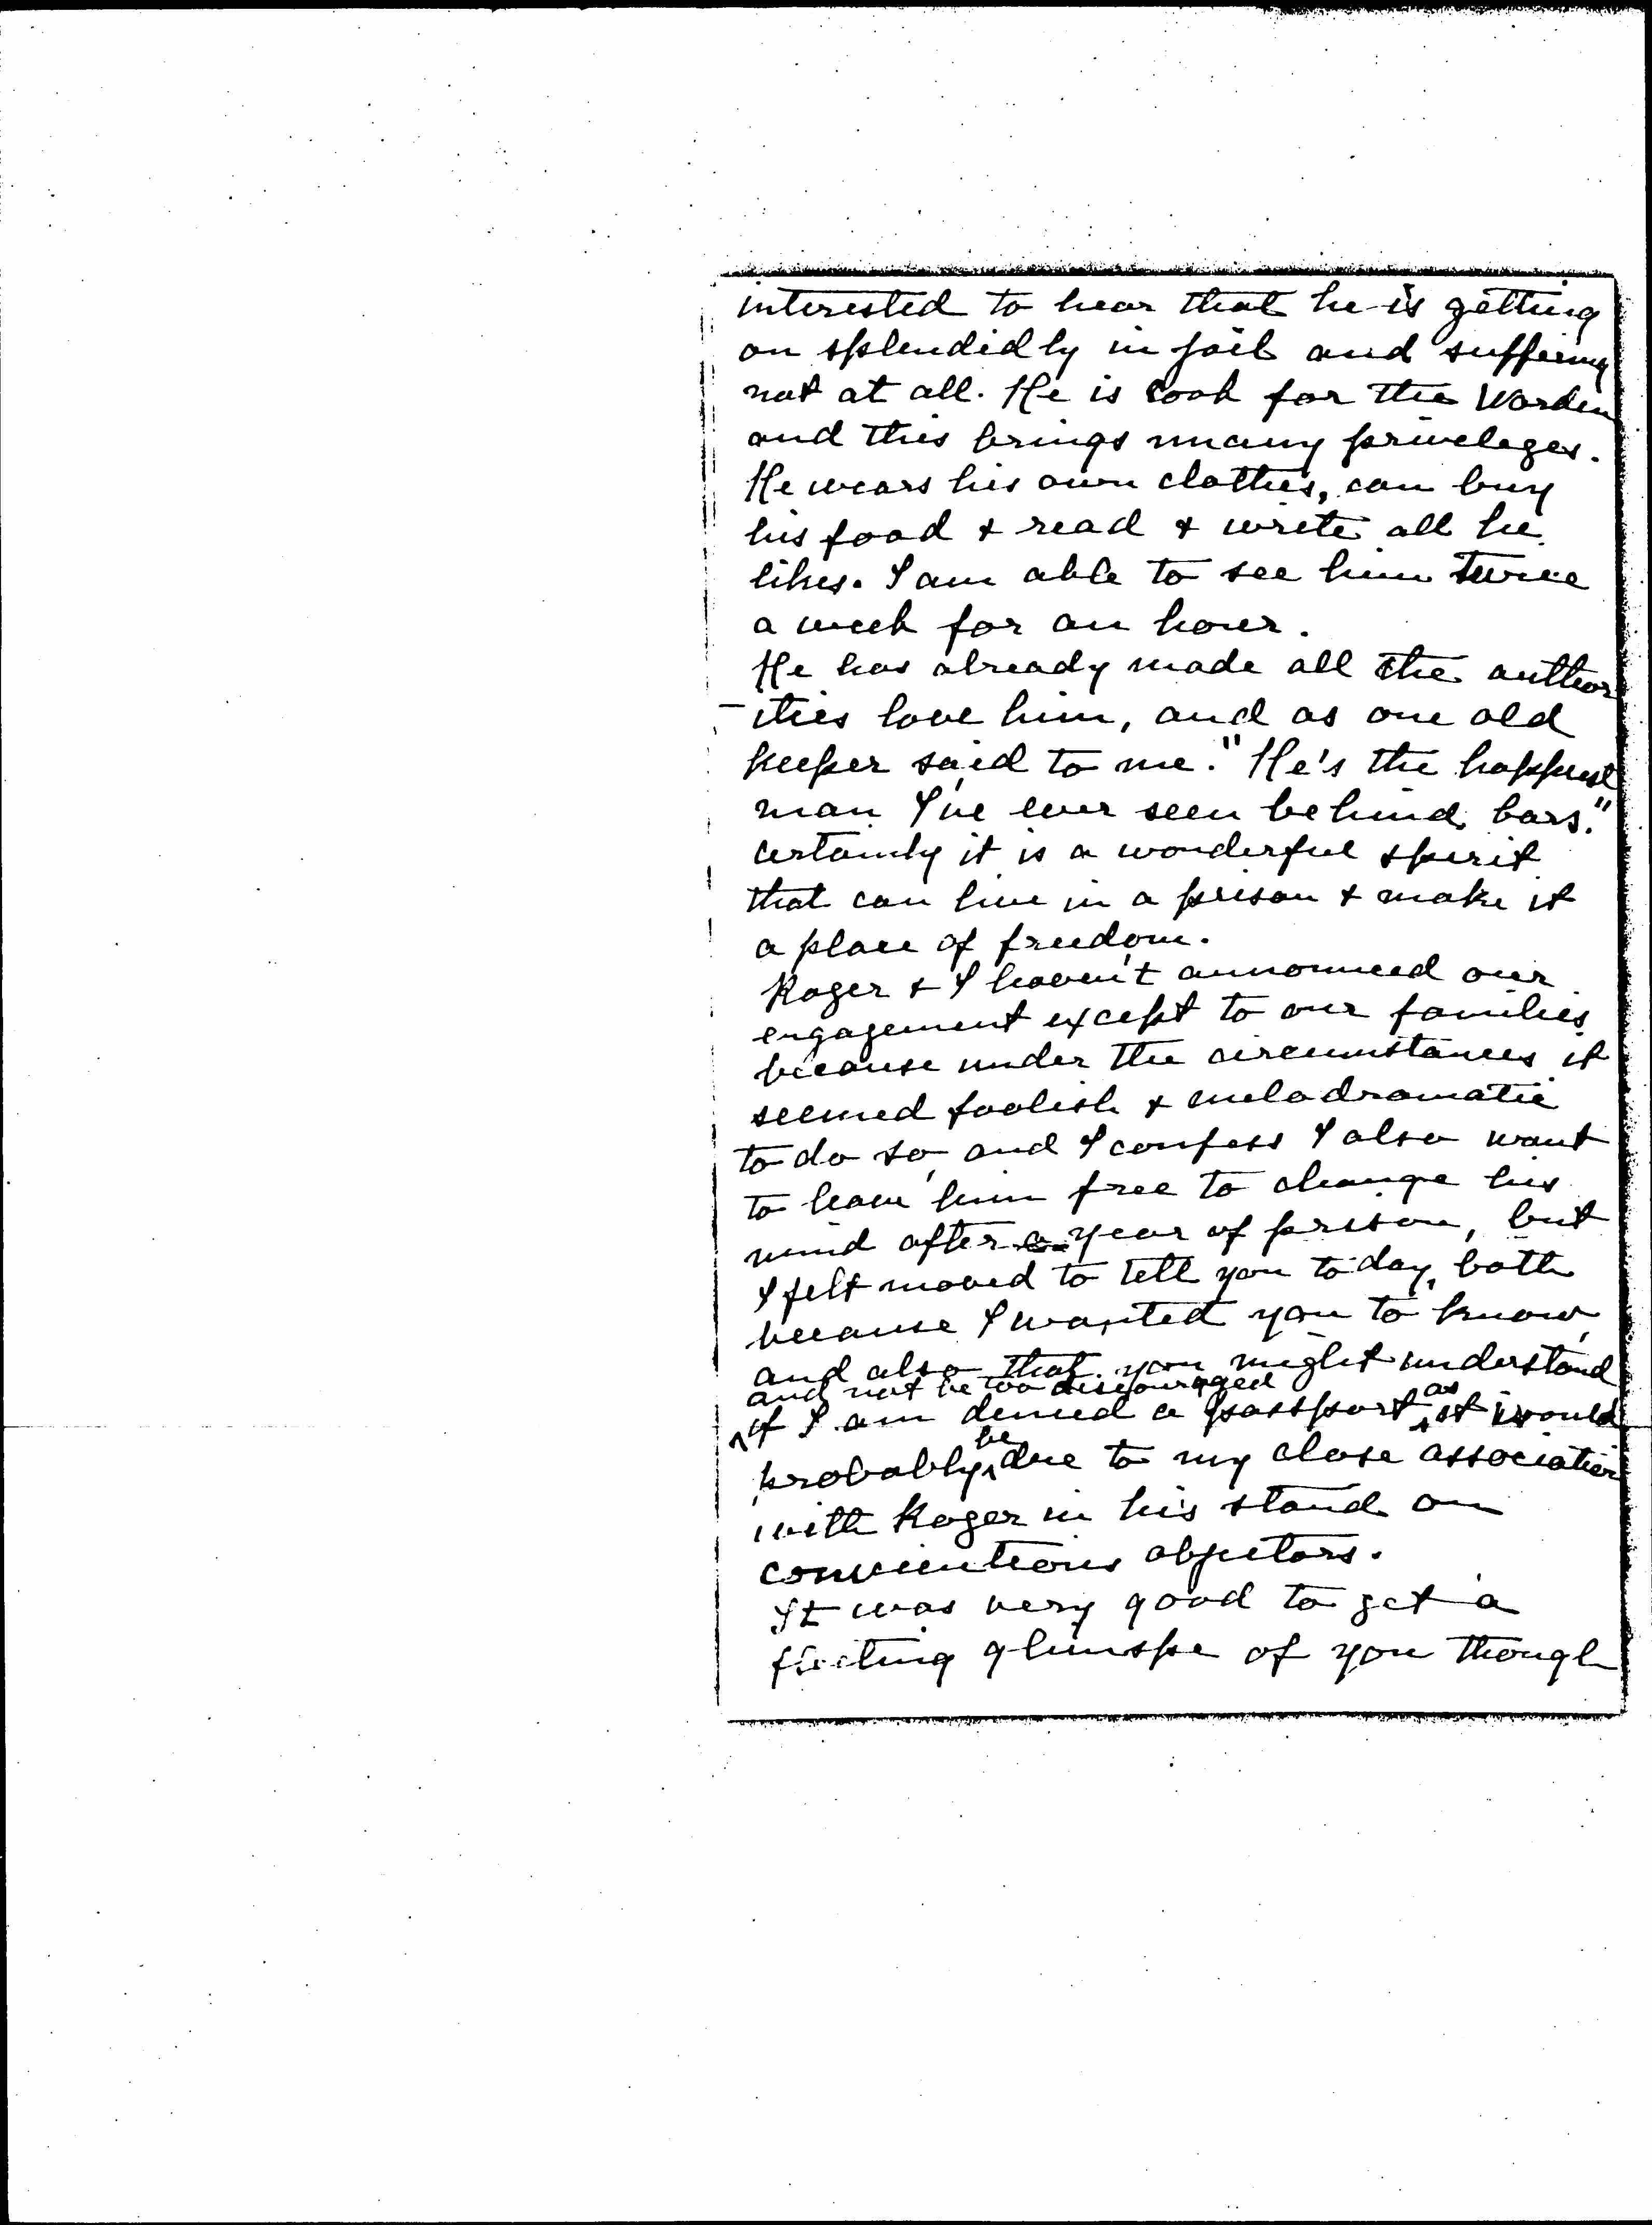 interested to hear that he is getting
on splendidly in jail and suffering
not at all. He is cook for the Warden
and this brings many priveleges.
He wears his own clothes, can buy
his food & read & write all he
likes. I am able to see him twice
a week for an hour.
He has already made all the author
-ities love him, and as one old
keeper said to me. "He's the happiest
man I've ever seen behind bars."
Certainly it is a wonderful spirit
that can live in a prison & make it
a place of freedom.
Roger & I haven't announced our
engagement except to our families
because under the circumstances it
seemed foolish & melodramatic
to do so, and I confess I also want
to leave him free to change his
mind after a year of prison, but
I felt moved to tell you to day, both
because I wanted you to know,
and also that you might understand
and not be too discouraged
^if I am denied a passport ^as it would
probably ^be due to my close association
with Roger in his stand on
conscientious objectors.
It was very good to get a
fleeting glimpse of you though